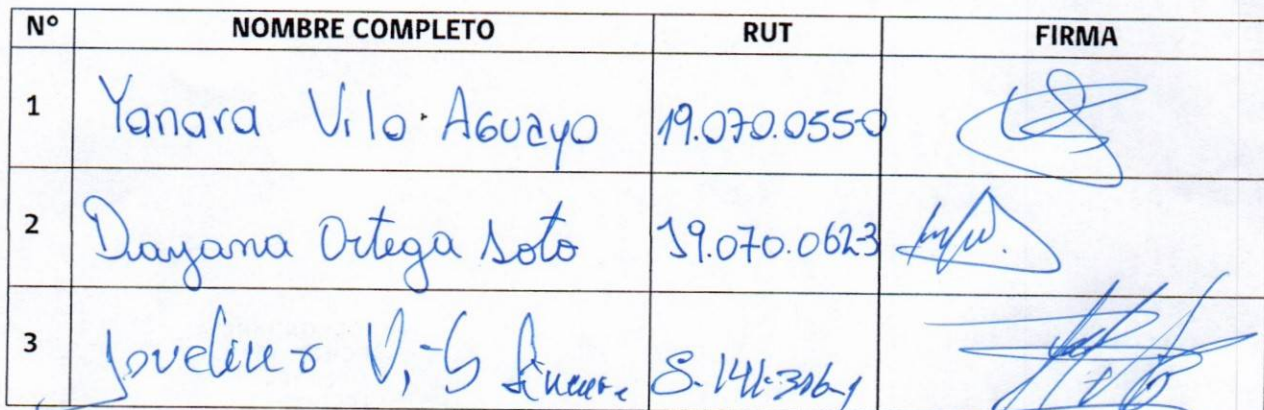 N° NOMBRE COMPLETO RUT FIRMA
1 Yanara Vilo Aguayo 19.070.055-0
2 Dayana Ortega Soto 19.070.062-3
3